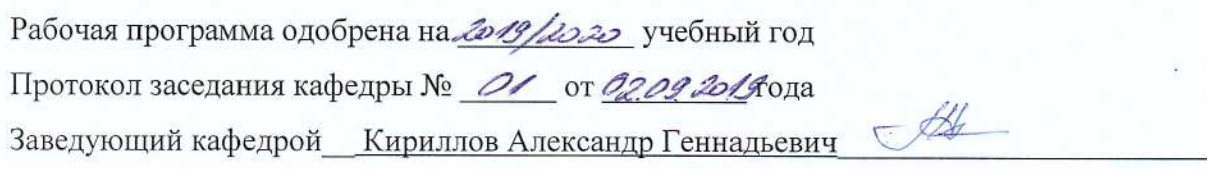 Рабочая программа одобрена на 2019/2020 учебный год
Протокол заседания кафедры № 01 от 02.09.2019 года
Заведующий кафедрой Кириллов Александр Геннадьевич